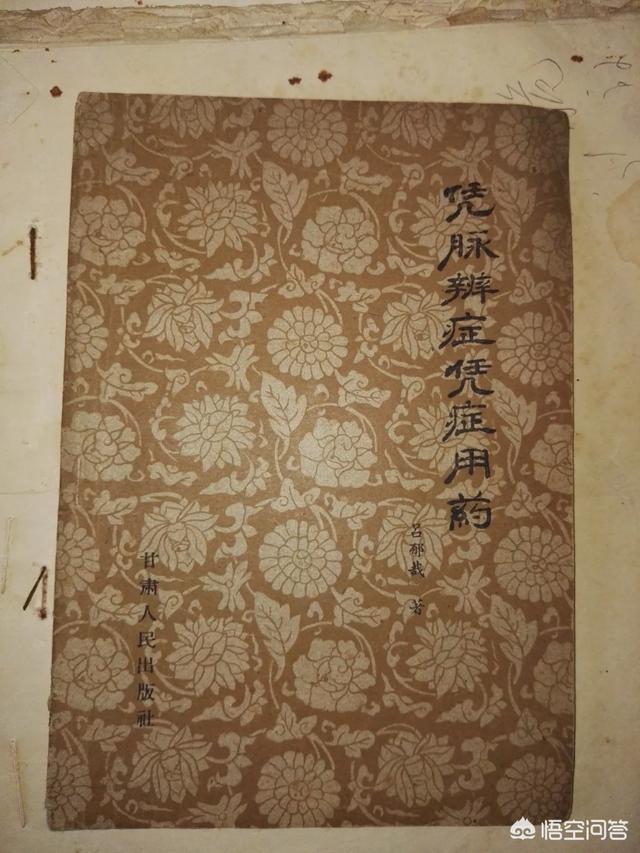 凭脉辨症凭症用药
吕郁哉 著
甘肃人民出版社
悟空问答